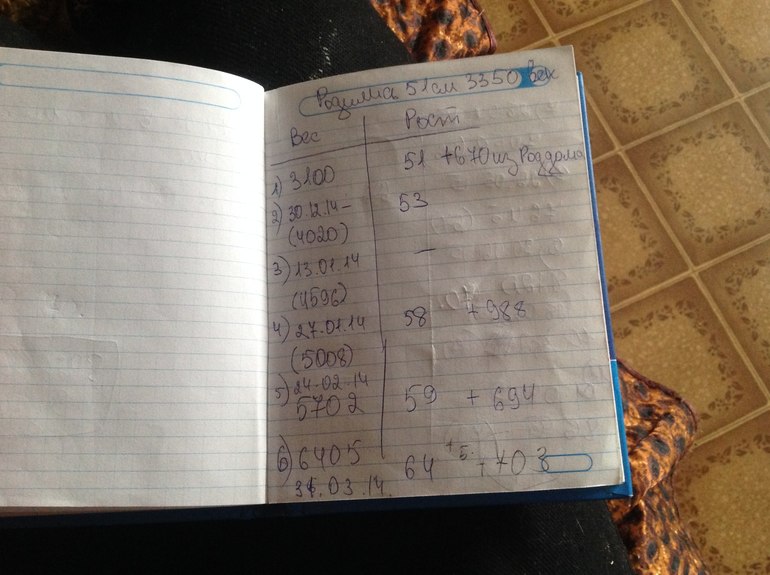 Родилась 51см 3350 Вес
Вес Рост
1) 3100 51 +670 из Роддома
2) 30.12.14 – 53
(4020)
3) 13.01.14 —
(4596)
4) 27.01.14 58 +988
(5008)
5) 24.02.14
5702 59 + 694
6) 6405 64 +5 +703
31.03.14.